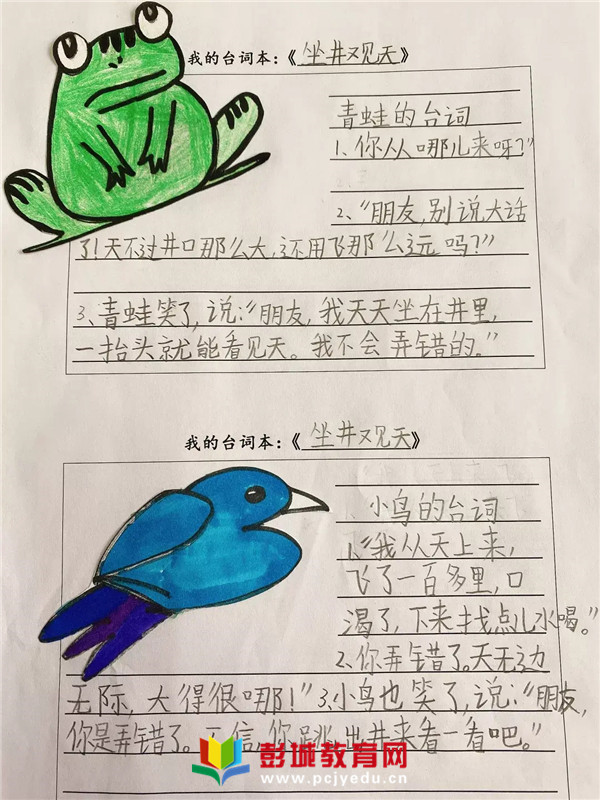 我的台词本：《坐井观天》
青蛙的台词
1、你从哪儿来呀？”
2、“朋友，别说大话
了！天不过井口那么大，还用飞那么远吗？”
3、青蛙笑了，说：“朋友，我天天坐在井里，
一抬头就能看见天。我不会弄错的。”
我的台词本：《坐井观天》
小鸟的台词
1、“我从天上来，
飞了一百多里，口
渴了，下来找点儿水喝。”
2、你弄错了。天无边
无际，大得很哪！”3、小鸟也笑了，说：“朋友，
你是弄错了。不信，你跳出井来看一看吧。”
彭城教育网
www.pcjyedu.cn